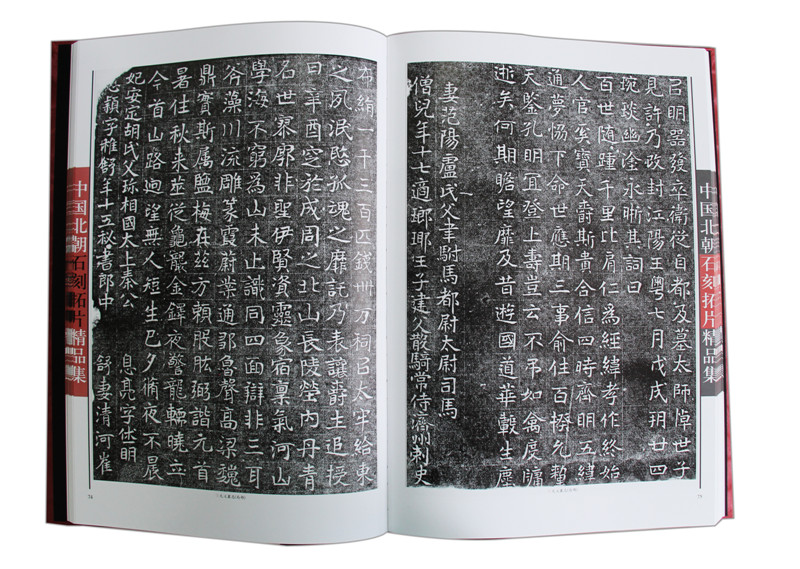 中国北朝石刻拓片精品集
以明器發卒衛從自都及墓太師悼世子
見許乃改封江陽王粵七月戊戌朔廿四
琬琰幽塗永晰其詞曰
百世隨踵千里比肩仁為經緯孝作終始
人官矣寶天爵斯貴合信四時齊明五緯
通夢協下命世應期三事俞往百揆允
天鑒孔明冝登上壽豈云不弔如禽度牖
逝矣何期瞻望靡及昔遊國道華轂生塵
妻范陽盧氏父聿駙馬都尉太尉司馬
僧兒年十七適瑯瑘王子建父散騎常侍濟州刺史
75
布絹一十三百匹錢卅万祠以太牢給東
之夙泯愍孤魂之靡託乃表讓爵生追授
曰辛酉窆於成周之北山長陵塋內丹青
名世寥廓非聖伊賢資靈象宿稟氣河山
學海不窮為山未止識同四面辯非三耳
谷藻川流雕篆霞蔚業通鄒魯聲高梁魏
鼎實斯属鹽梅在茲方賴股肱弼諧元首
暑往秋來筮從龜襲金鐸夜警龍轜曉立
今首山路迴望無人短生已夕脩夜不晨
妃安定胡氏父珎相國太上秦公 息亮字休明
息穎字稚舒年十五秘書郎中 舒妻清河崔
74
中国北朝石刻拓片精品集